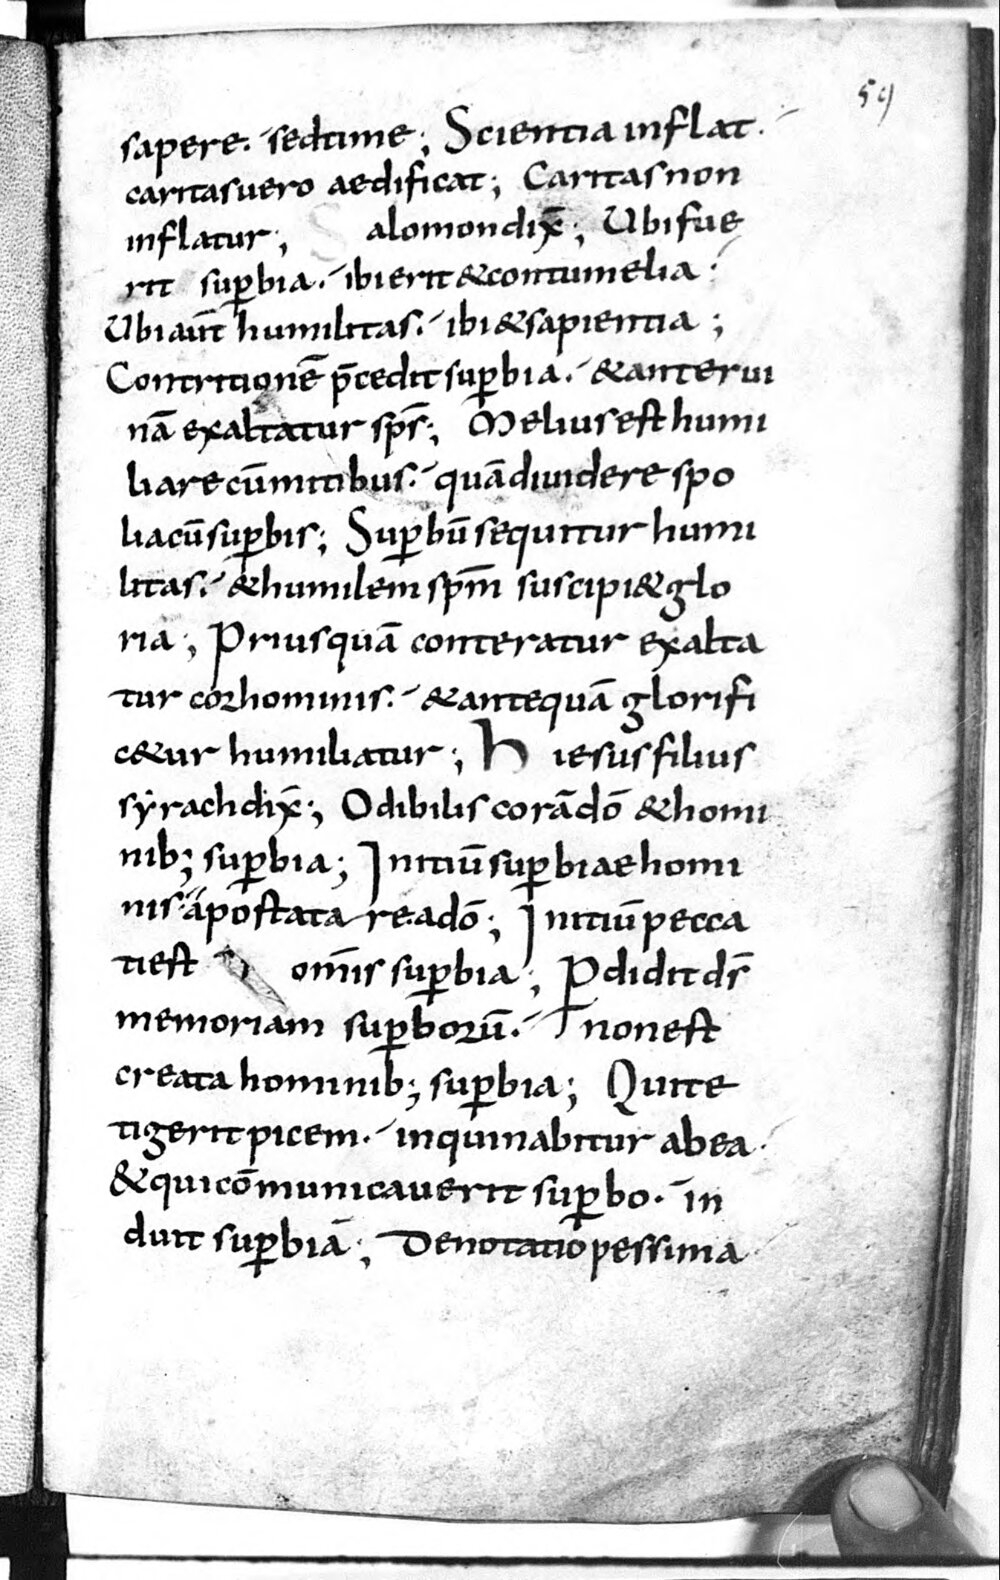 59
sapere. sed time; Scientia inflat.
caritas uero aedificat; Caritas non
inflatur; Salomon dix̄; Ubi fue
rit sup̱bia. ibi erit & contumelia:
Ubi aūt humilitas. ibi & sapientia;
Contritionē p̄cedit sup̱bia. & ante rui
nā exaltatur sp̄s; Melius est humi
liare cū mitibus. quā diuidere spo
lia cū sup̱bis; Sup̱bū sequitur humi
litas. & humilem sp̄m suscipi& glo
ria; Priusquā conteratur exalta
tur cor hominis. & antequā glorifi
c&ur humiliatur; Hiesus filius
syrach dix̄; Odibilis corā dō & homi
nib; sup̱bia; Initiū sup̱biae homi
nis apostatare a dō; Initiū pecca
ti est om̄is sup̱bia; P̱didit d̄s
memoriam sup̱borū. non est
creata hominib; sup̱bia; Qui te
tigerit picem. inquinabitur ab ea.
& qui cōmunicauerit sup̱bo. in
duit sup̱biā; Denotatio pessima